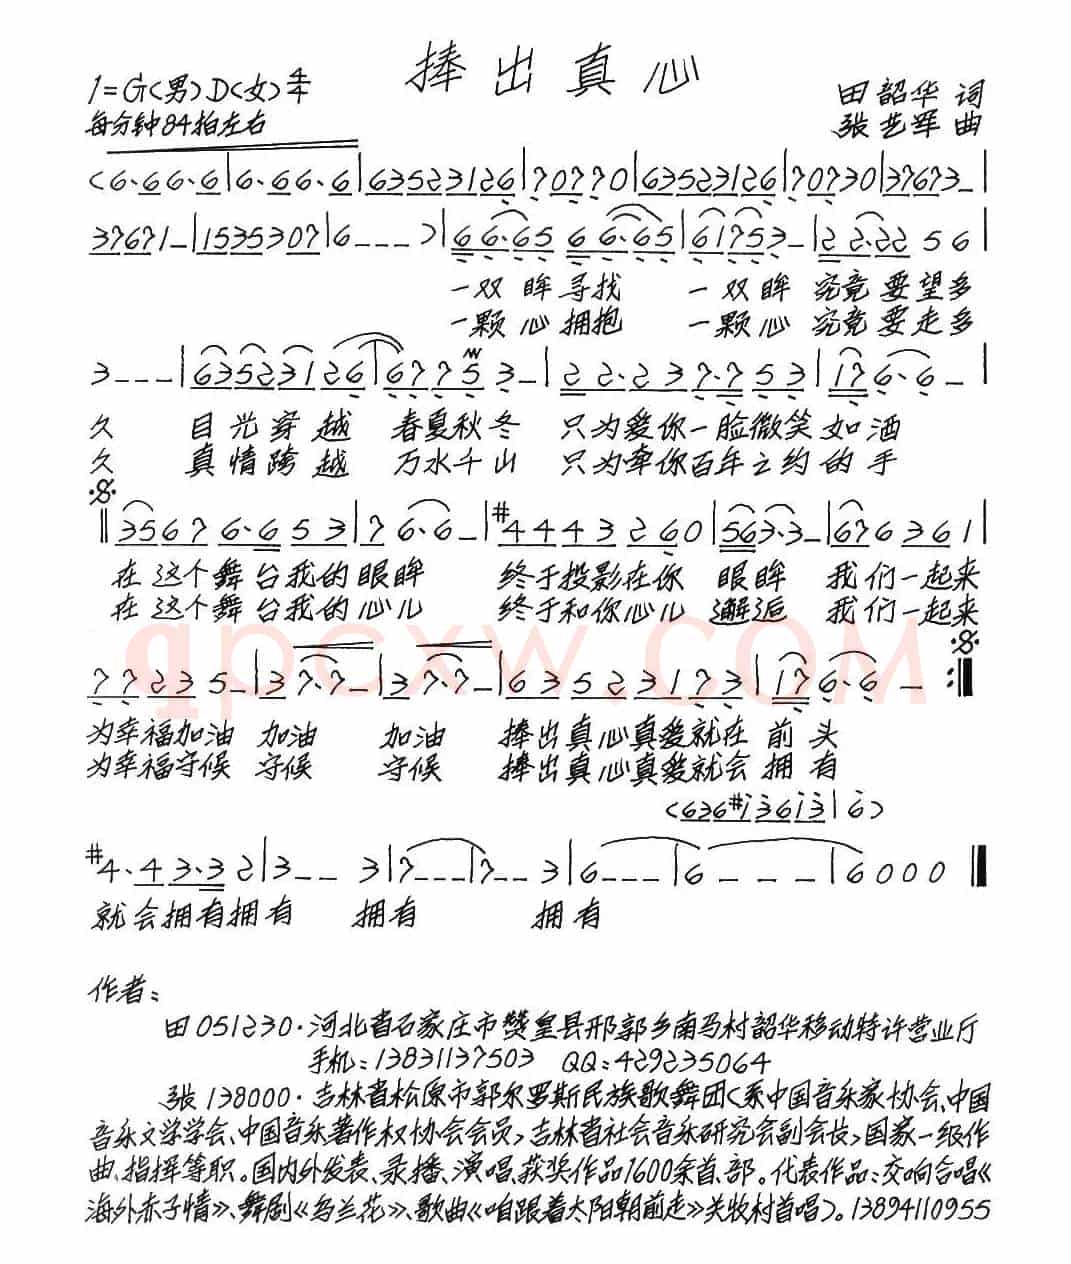 捧出真心
1=G(男)D(女)4/4
每分钟84拍左右
田韶华 词
张艺军 曲
(6·66·6|6·66·6|63523126|70770|63523126|70730|37673_|
37671_|1535307|6___)|66·6566·65|61753_|22·2256|
一双眸寻找 一双眸 究竟要望多
一颗心拥抱 一颗心 究竟要走多
3___|63523126|67753_|22·237·753|176·6_|
久 目光穿越 春夏秋冬 只为爱你一脸微笑如酒
久 真情跨越 万水千山 只为牵你百年之约的手
‖35676·653|76·6_|#4443260|563·3_|676361|
在这个舞台我的眼眸 终于投影在你 眼眸 我们一起来
在这个舞台我的心儿 终于和你心儿 邂逅 我们一起来
qpcxw.COM
77235_|37·7_|37·7_|63523173|176·6_:‖
为幸福加油 加油 加油 捧出真心真爱就在前头
为幸福守候 守候 守候 捧出真心真爱就会拥有
(636#i36i3|6)
#4·43·32|3__3|7___|7__3|6___|6___|6000‖
就会拥有拥有 拥有 拥有
作者:
田051230·河北省石家庄市赞皇县邢郭乡南马村韶华移动特许营业厅
手机:13831137503 QQ:429235064
张138000·吉林省松原市郭尔罗斯民族歌舞团(系中国音乐家协会、中国
音乐文学学会、中国音乐著作权协会会员,吉林省社会音乐研究会副会长,国家一级作
曲、指挥等职。国内外发表、录播、演唱、获奖作品1600余首、部。代表作品:交响合唱《
海外赤子情》、舞剧《乌兰花》、歌曲《咱跟着太阳朝前走》关牧村首唱)。13894110955